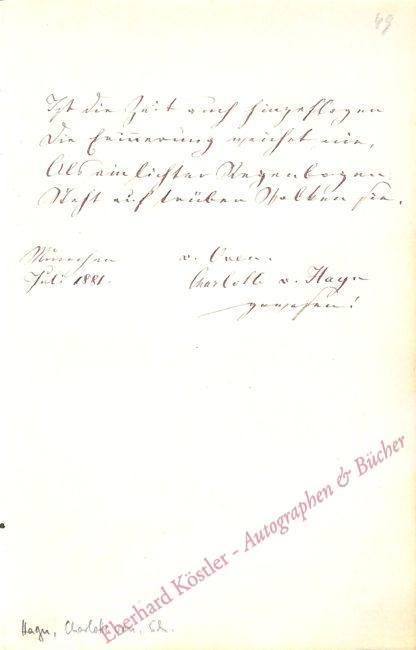 49
Ist die Zeit auch hingeflogen
Die Erinnerung weichet nie,
Als ein lichter Regenbogen
Steht auf trüben Wolken sie.
München
Juli 1881.
v. Oven.
Charlotte v. Hagn
gewesen!
Eberhard Köstler - Autographen & Bücher
Hagn, Charlotte von, Sch.